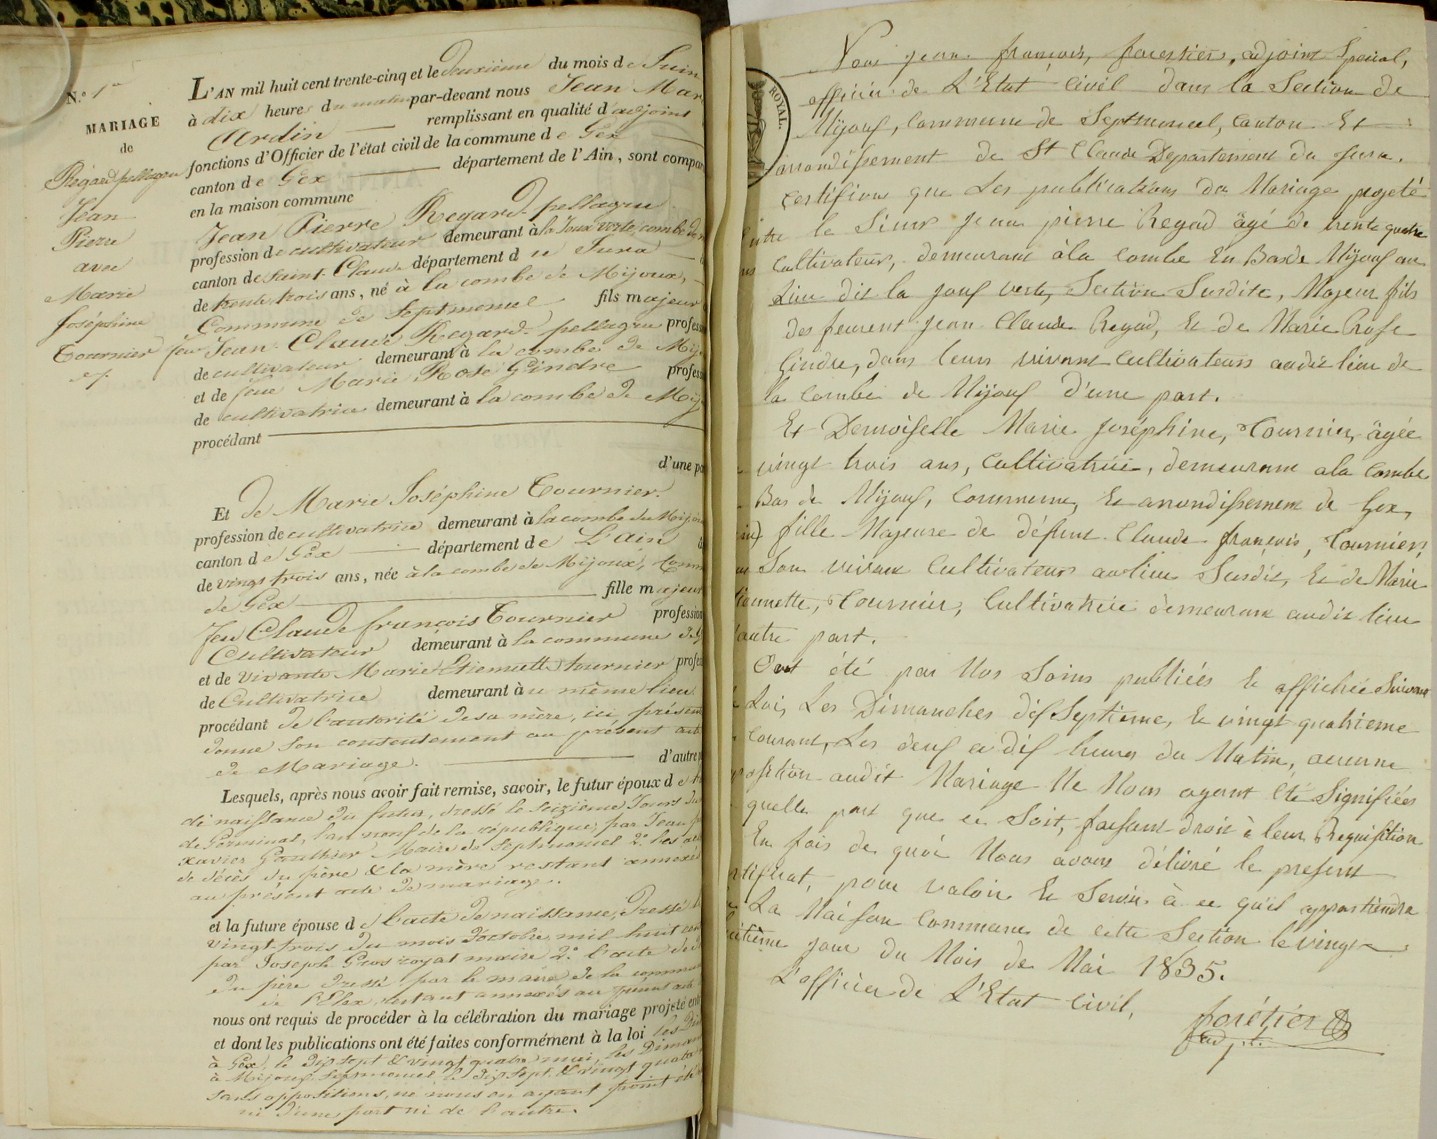 N.o 1er
MARIAGE
de
Regard pellagru
Jean
Pierre
avec
Marie
Joséphine
Tournier
L'AN mil huit cent trente-cinq et le deuxième du mois de Juin
à dix heures du matin par-devant nous Jean Mar
Ardin remplissant en qualité d'adjoint
fonctions d'Officier de l'état civil de la commune de Gex
canton de Gex département de l'Ain, sont compar
en la maison commune
Jean Pierre Regard-pellagru
profession de cultivateur demeurant à la Joux verte, combe de
canton de Saint-Claude département du Jura
de trente trois ans, né à la combe de Mijoux,
Commune de Septmoncel fils majeur
feu Jean-Claude Regard-pellagru profess
de cultivateur demeurant à la combe de Mij
et de feue Marie Rose Gindre profess
de cultivatrice demeurant à la combe de Mij
procédant
d'une pa
Et de Marie Joséphine Tournier.
profession de cultivatrice demeurant à la combe de Mijou
canton de Gex département de L'Ain
de vingt trois ans, née à la combe de Mijoux, Comm
de Gex fille majeur
feu Claude françois Tournier profession
Cultivateur demeurant à la commune de G
et de vivante Marie Etiennette tournier profes
de Cultivatrice demeurant au même lieu
procédant de l'autorité de sa mère, ici, présent
donne son consentement au présent acte
de Mariage. d'autre p
Lesquels, après nous avoir fait remise, savoir, le futur époux de
de naissance du futur, dressé le seizième Jours du
de Germinal, l'an neuf de la république, par Jean
xavier Gauthier Maire de Septmoncel 2.o les act
de décès du père & la mère restant annexés
au présent acte de mariage.
et la future épouse de l'acte de naissance, dressé le
vingt trois du mois d'octobre mil huit cent
par Joseph Gros royat maire 2.o l'acte de
du père dressé par le maire de la commun
de restant annexés au présent acte
nous ont requis de procéder à la célébration du mariage projeté ent
et dont les publications ont été faites conformément à la loi les Dim
à Gex, le dix sept & vingt quatre mai, les Diman
à Mijoux, Septmoncel, le dix sept & vingt quatre
sans oppositions, ne nous en ayant point été
ni d'une part ni de l'autre.
ROYAL.
Nous jean françois, forestier, adjoint Spécial,
officier de L'Etat Civil dans la Section de
Mijoux, Commune de Septmoncel, Canton Et
arrondissement de St Claude Département du Jura.
Certifions que Les publications du Mariage projeté
Entre le Sieur jean pierre Regad âgé de trente quatre
Cultivateur, demeurant à la Combe En Bas de Mijoux au
Lieu dit la joux verte, Section Susdite, Majeur fils
des feurent Jean Claude Regad, Et de Marie Rose
Gindre, dans leurs vivant Cultivateurs audit lieu de
la Combe de Mijoux d'une part.
Et Demoiselle Marie joséphine, Tournier, âgée
vingt trois ans, Cultivatrice, demeurant à la Combe
Bas de Mijoux, Commune, Et arrondissement de Gex,
fille Majeure de défunt Claude françois, Tournier,
Son vivant Cultivateur au lieu Susdit, Et de Marie
tiennette, Tournier, Cultivatrice demeurant audit lieu
autre part.
Ont été par Nos Soins publiés Et affichée Suivant
Loi, Les Dimanches dix Septième, Et vingt quatrieme
Courant, Les deux à dix heures du Matin, aucune
position audit Mariage Ne Nous ayant Eté Signifiées
quelle part que ce Soit, faisant droit à leur Requisition
En fois de quoi Nous avons délivré le present
rtificat, pour valoir Et Servir à ce qu'il appartiendra
La Maison Commune de cette Section le vingt
uitième jour du Mois de Mai 1835.
L'officier de L'Etat Civil,
forétier
adj.t